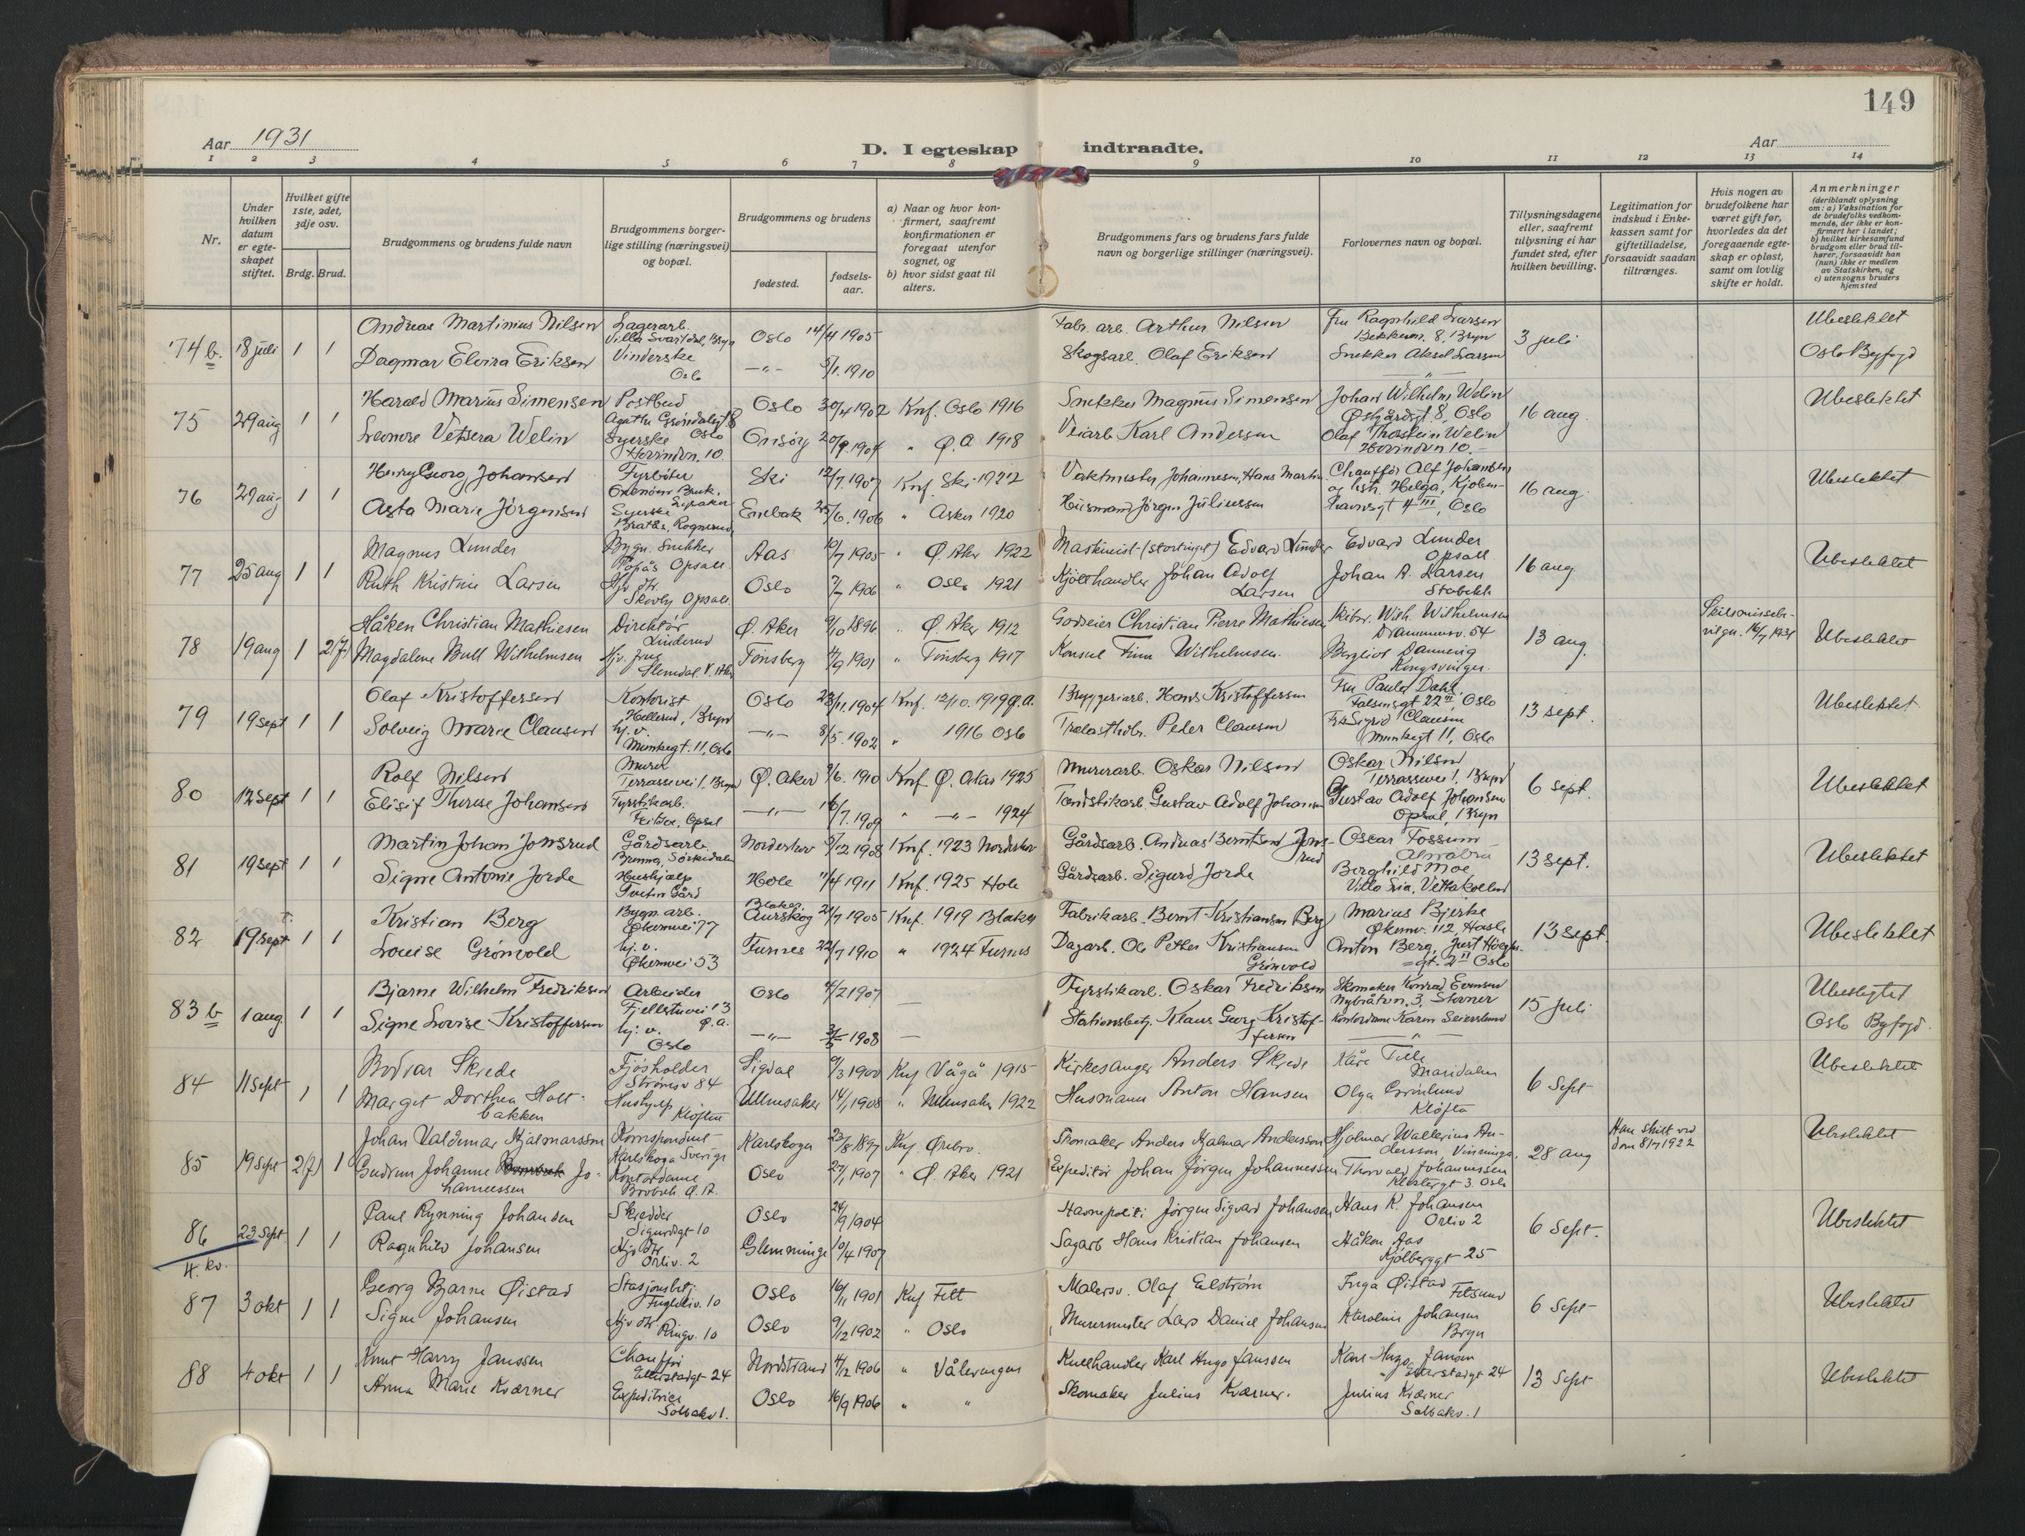 149
Aar 1931
D. I egteskap indtraadte.
Aar
1 2 3 4 5 6 7 8 9 10 11 12 13 14
Nr.
Under hvilken datum er egteskapet stiftet.
Hvilket gifte 1ste, 2det, 3dje osv.
Brdg. Brud.
Brudgommens og brudens fulde navn
Brudgommens borgerlige stilling (næringsvei) og bopæl.
Brudgommens og brudens
fødested.
fødselsaar.
a) Naar og hvor konfirmert, saafremt konfirmationen er foregaat utenfor sognet, og
b) hvor sidst gaat til alters.
Brudgommens fars og brudens fars fulde navn og borgerlige stillinger (næringsvei).
Forlovernes navn og bopæl.
Tillysningsdagene eller, saafremt tillysning ei har fundet sted, efter hvilken bevilling.
Legitimation for indskud i Enkekassen samt for giftetilladelse, forsaavidt saadan tiltrænges.
Hvis nogen av brudefolkene har været gift før, hvorledes da det foregaaende egteskap er opløst, samt om lovlig skifte er holdt.
Anmerkninger (deriblandt oplysning om: a) Vaksination for de brudefolks vedkommende, der ikke er konfirmert her i landet; b) hvilket kirkesamfund brudgom eller brud tilhører, forsaavidt han (hun) ikke er medlem av Statskirken, og c) utensogns bruders hjemsted
74 b. 18 juli 1 1 Andreas Martinius Nilsen Lagerarb. Villa Svartdal, Bryn Oslo 14/4 1905 Fabr. arb. Arthur Nilsen Fru Ragnhild Larsen 8, Bryn 3 juli Ubeslektet
Dagmar Elvira Eriksen Vinderske Oslo —"— 5/1. 1910 Skogsarb. Olaf Eriksen Snekker Aksel Larsen Oslo Byfogd
75 29 aug 1 1 Harald Marius Simensen Postbud Agathe Grøndalsgt 8 Oslo Oslo 30/4 1902 Knf. Oslo 1916 Snekker Magnus Simensen Johan Wilhelm Welin Østgårdsgt. 8, Oslo 16 aug. Ubeslektet
Leonore Vetsera Welin Syerske Hovindvn. 10. Onsøy 20/9. 1904 " Ø. A 1918 Veiarb Karl Andersen Olaf Thorstein Welin Hovindvn 10.
76 29 aug 1 1 Henry Georg Johansen Fyrbøter Ski 12/7. 1907 Knf. Ski 1922 Vaktmester Johannesen, Hans Martin Chauffør Alf Johansen 16 aug. Ubeslektet
Asta Marie Jørgensen Syerske Enebak 25/6. 1906 " Asker 1920 Husmand Jørgen Juliussen og Helga, Kjøbenhavnsgt 4 III, Oslo
77 25 aug 1 1 Magnus Lunder Bygn. Snekker Opsall Aas 10/7 1905 " Ø Aker 1922 Maskinist (Stortinget) Edvard Lunder Edvard Lunder Opsall 16 aug Ubeslektet
Ruth Kristine Larsen Hjv. dtr. Skovly Opsall. Oslo 7/7 1906 " Oslo 1921 Kjøtthandler Johan Adolf Larsen Johan A. Larsen
78 19 aug 1 2 (f) Håken Christian Mathiesen Direktør Linderud Ø. Aker 9/10 1896 " Ø. Aker 1912 Godseier Christian Pierre Mathiesen Wilh. Wilhelmsen Drammensv. 54 13 aug. Ubeslektet
Magdalene Bull Wilhelmsen Hjv. frue Slemdal V. Aker Tønsberg 4/9 1901 " Tønsberg 1917 Konsul Finn Wilhelmsen. Bergliot Dannevig Kongsvinger.
79 19 sept 1 1 Olaf Kristoffersen Kontorist Hellerud, Bryn Oslo 23/11. 1904 Knf. 12/10. 1919 Ø.A. Bryggeriarb. Hans Kristoffersen Fru Paula Dahl, Falsensgt 22 II, Oslo 13 sept. Ubeslektet
Solveig Marie Clausen hj. v. Munkegt. 11, Oslo —"— 8/5. 1902 " 1916 Oslo Trelasthdlr. Peder Clausen Frk Sigrid Clausen Munkegt 11, Oslo
80 12 sept 1 1 Rolf Nilsen Murer Terrassevei 1, Bryn Ø. Aker /6. 1910 Knf Ø. Aker 1925 Murerarb. Oskar Nilsen Oskar Nilsen Terrassevei 1, Bryn 6 sept. Ubeslektet
Elisif Therese Johansen Fyrstikarb. Opsal —"— 16/7. 1909 " —"— 1924 Tændstikarb. Gustav Adolf Johansen Gustav Adolf Johansen Opsal, Bryn
81 19 sept 1 1 Martin Johan Jonsrud Gårdsarb. Brenna, Sørkedalen Norderhov 5/12 1908 Knf. 1923 Norderhov Gårdsarb. Andreas Berntsen Jonsrud Oscar Fossum Alnabru 13 sept. Ubeslektet
Signe Antonie Jorde Hushjælp Tveten Gård Hole 11/4 1911 Knf. 1925 Hole Gårdsarb. Sigurd Jorde Berghild Moe Villa Lia, Vettakollen
82 19 sept 1 1 Kristian Berg Bygn. arb. Økernvei 77 Blaker, Aurskog 21/7 1905 Knf. 1919 Blaker Fabrikarb. Bernt Kristiansen Berg Marius Bjerke Økernv. 112, Hasle 13 sept. Ubeslektet
Louise Grønvold hj. v. Økernvei 53 Furnes 22/7 1910 " 1924 Furnes Dagarb. Ole Petter Kristiansen Grønvold Anton Berg, Just Høeghs gt. 2 II Oslo
83 b 1 aug. 1 1 Bjarne Wilhelm Fredriksen Arbeider Fjellstuvei 13 Ø.A. Oslo 4/2 1907 — Fyrstikarb. Oskar Fredriksen Skomaker Konrad Evensen 15 juli Ubeslegtet
Signe Lovise Kristoffersen hj. v. Oslo —"— 3/5 1908 — Stationsbetj. Klaus Georg Kristoffersen Kontordame Karen Seierslund Oslo Byfogd.
84 11 sept 1 1 Bodvar Skrede Fjøsholder Strømsv 84 Sigdal 9/3 1900 Knf Vågå 1915 Kirkesanger Anders Skrede Kåre Maridalen 6 Sept Ubeslektet
Margit Dorthea Holtbakken Hushjelp Kløften Ullensaker 14/1 1908 " Ullensaker 1922 Husmann Anton Hansen Olga Grønlund Kløfta
85 19 sept 2 (f) 1 Johan Valdemar Hjalmarsson Korrespondent Karlskoga Sverige Karlskoga 23/8 1897 Knf Ørebro. Skomaker Anders Hjalmar Andersson Hjalmar Wallerius Andersson, 28 aug Han skilt ved dom 8/7 1922 Ubeslektet
Gudrun Johanne Johannessen Kontordame Brobæk Ø. A. Oslo 27/1 1907 " Ø. Aker 1921 Expeditør Johan Jørgen Johannessen Thorvald Johannessen Klostergt 3. Oslo
86 23 Sept. 1 1 Paul Rynning Johansen Skredder Sigurdsgt 10 Oslo 24/9 1904 Havnepoliti Jørgen Sigvard Johansen Hans K. Johansen Orliv 2 6 Sept. Ubeslektet
Ragnhild Johansen Hjv dtr Orliv. 2 Glemminge 10/4 1907 Sagarb Hans Kristian Johansen Håkon Aas Kjølberggt 25
4. kv.
87 3 okt 1 1 Georg Bjarne Øistad Stasjonsbetj. Fugleliv. 10 Oslo 16/11 1901 Knf Fett Malersv. Olaf Elstrøm Inga Øistad Fetsund 6 Sept Ubeslektet
Signe Johansen Hjv dtr Ringv. 10 Oslo 9/12 1902 " Oslo Murermester Lars Daniel Johansen Karoline Johansen Bryn
88 4 okt 1 1 Knut Harry Janssen Chauffør 24 Nordstrand 4/12 1906 " Vålerengen Kullhandler Karl Hugo Janssen Karl Hugo Jansen 24 13 Sept Ubeslektet
Anna Marie Kværner Expeditrice Solbakv 1. Oslo 16/9 1906 " " Skomaker Julius Kværner. Julius Kværner Solbakv. 1